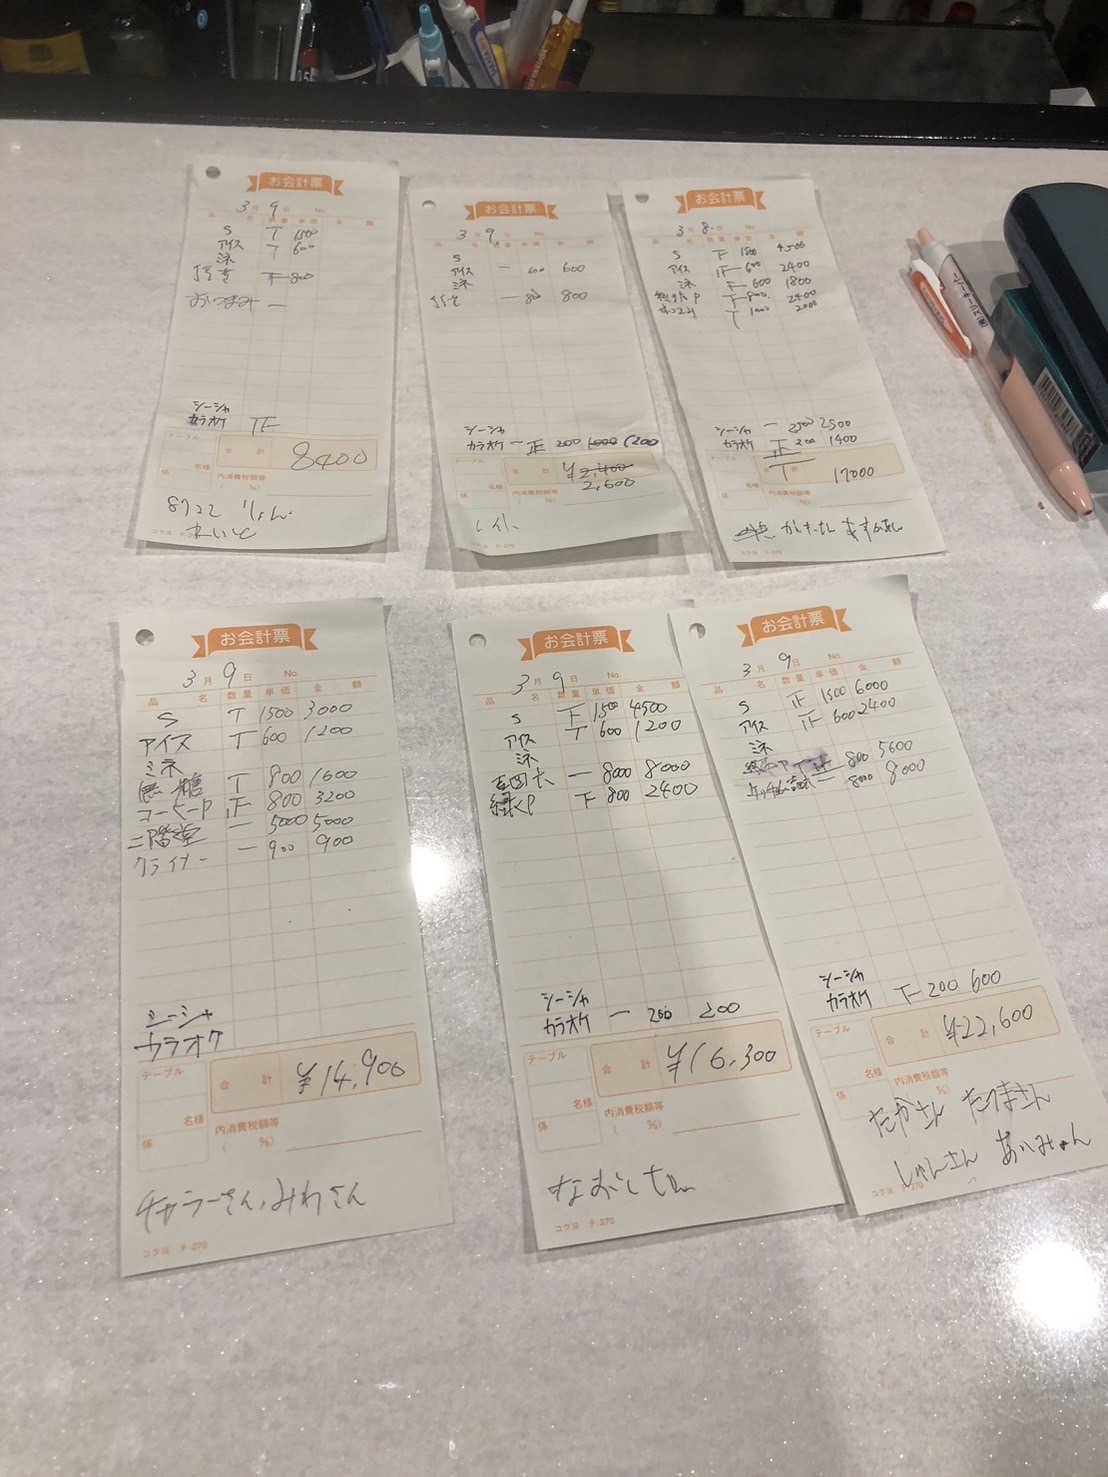 お会計票
3月 9日 No.
品 名 数量 単価 金 額
S T 1500
アイス T 600
ミネ
下 800
おつまみ 一
シーシャ
カラオケ
テーブル 合 計 8400
名様 内消費税額等
係 ( %)
コクヨ テ-270
お会計票
3月 9日 No.
品 名 数量 単価 金 額
S
アイス 一 600 600
ミネ
一 800 800
シーシャ
カラオケ 一 正 200 1200
テーブル 合 計 ¥2,400
2,600
名様 内消費税額等
係 ( %)
コクヨ テ-270
お会計票
3月 8日 No.
品 名 数量 単価 金 額
S 下 1500 4500
アイス 600 2400
ミネ 下 600 1800
下 800 2400
T 1000 2000
シーシャ 一 2500 2500
カラオケ 正T 200 1400
テーブル 合 計 17000
名様 内消費税額等
係 ( %)
コクヨ テ-270
お会計票
3月 9日 No.
品 名 数量 単価 金 額
S T 1500 3000
アイス T 600 1200
ミネ
無糖 T 800 1600
コーヒーP 800 3200
二階堂 一 5000 5000
クライナー 一 900 900
シーシャ
カラオケ
テーブル 合 計 ¥14,900
名様 内消費税額等
係 ( %)
チャラーさん、みわさん
コクヨ テ-270
お会計票
3月 9日 No.
品 名 数量 単価 金 額
S 下 1500 4500
アイス T 600 1200
ミネ
一 8000 8000
緑茶P 下 800 2400
シーシャ
カラオケ 一 200 200
テーブル 合 計 ¥16,300
名様 内消費税額等
係 ( %)
コクヨ テ-270
お会計票
3月 9日 No.
品 名 数量 単価 金 額
S 1500 6000
アイス 600 2400
ミネ
800 5600
一 8000 8000
シーシャ
カラオケ 下 200 600
テーブル 合 計 ¥22,600
名様 内消費税額等
係 ( %)
たかさん たつまさん
しゅんさん あいみょん
コクヨ テ-270